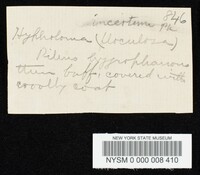 incertum 846
Hypholoma (flocculosa)
Pileus hygrophanous
then buff, covered with
woolly coat
NEW YORK STATE MUSEUM
NYSM 0 000 008 410